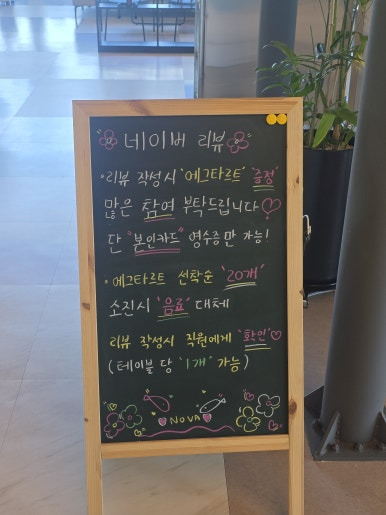 "네이버 리뷰"
• 리뷰 작성시 '에그타르트' '증정'
많은 참여 부탁드립니다♡
단 "본인카드" 영수증만 가능!
• 에그타르트 선착순 '20개'
소진시 '음료' 대체
리뷰 작성시 직원에게 '확인'♡
(테이블 당 '1개' 가능)
NOVA